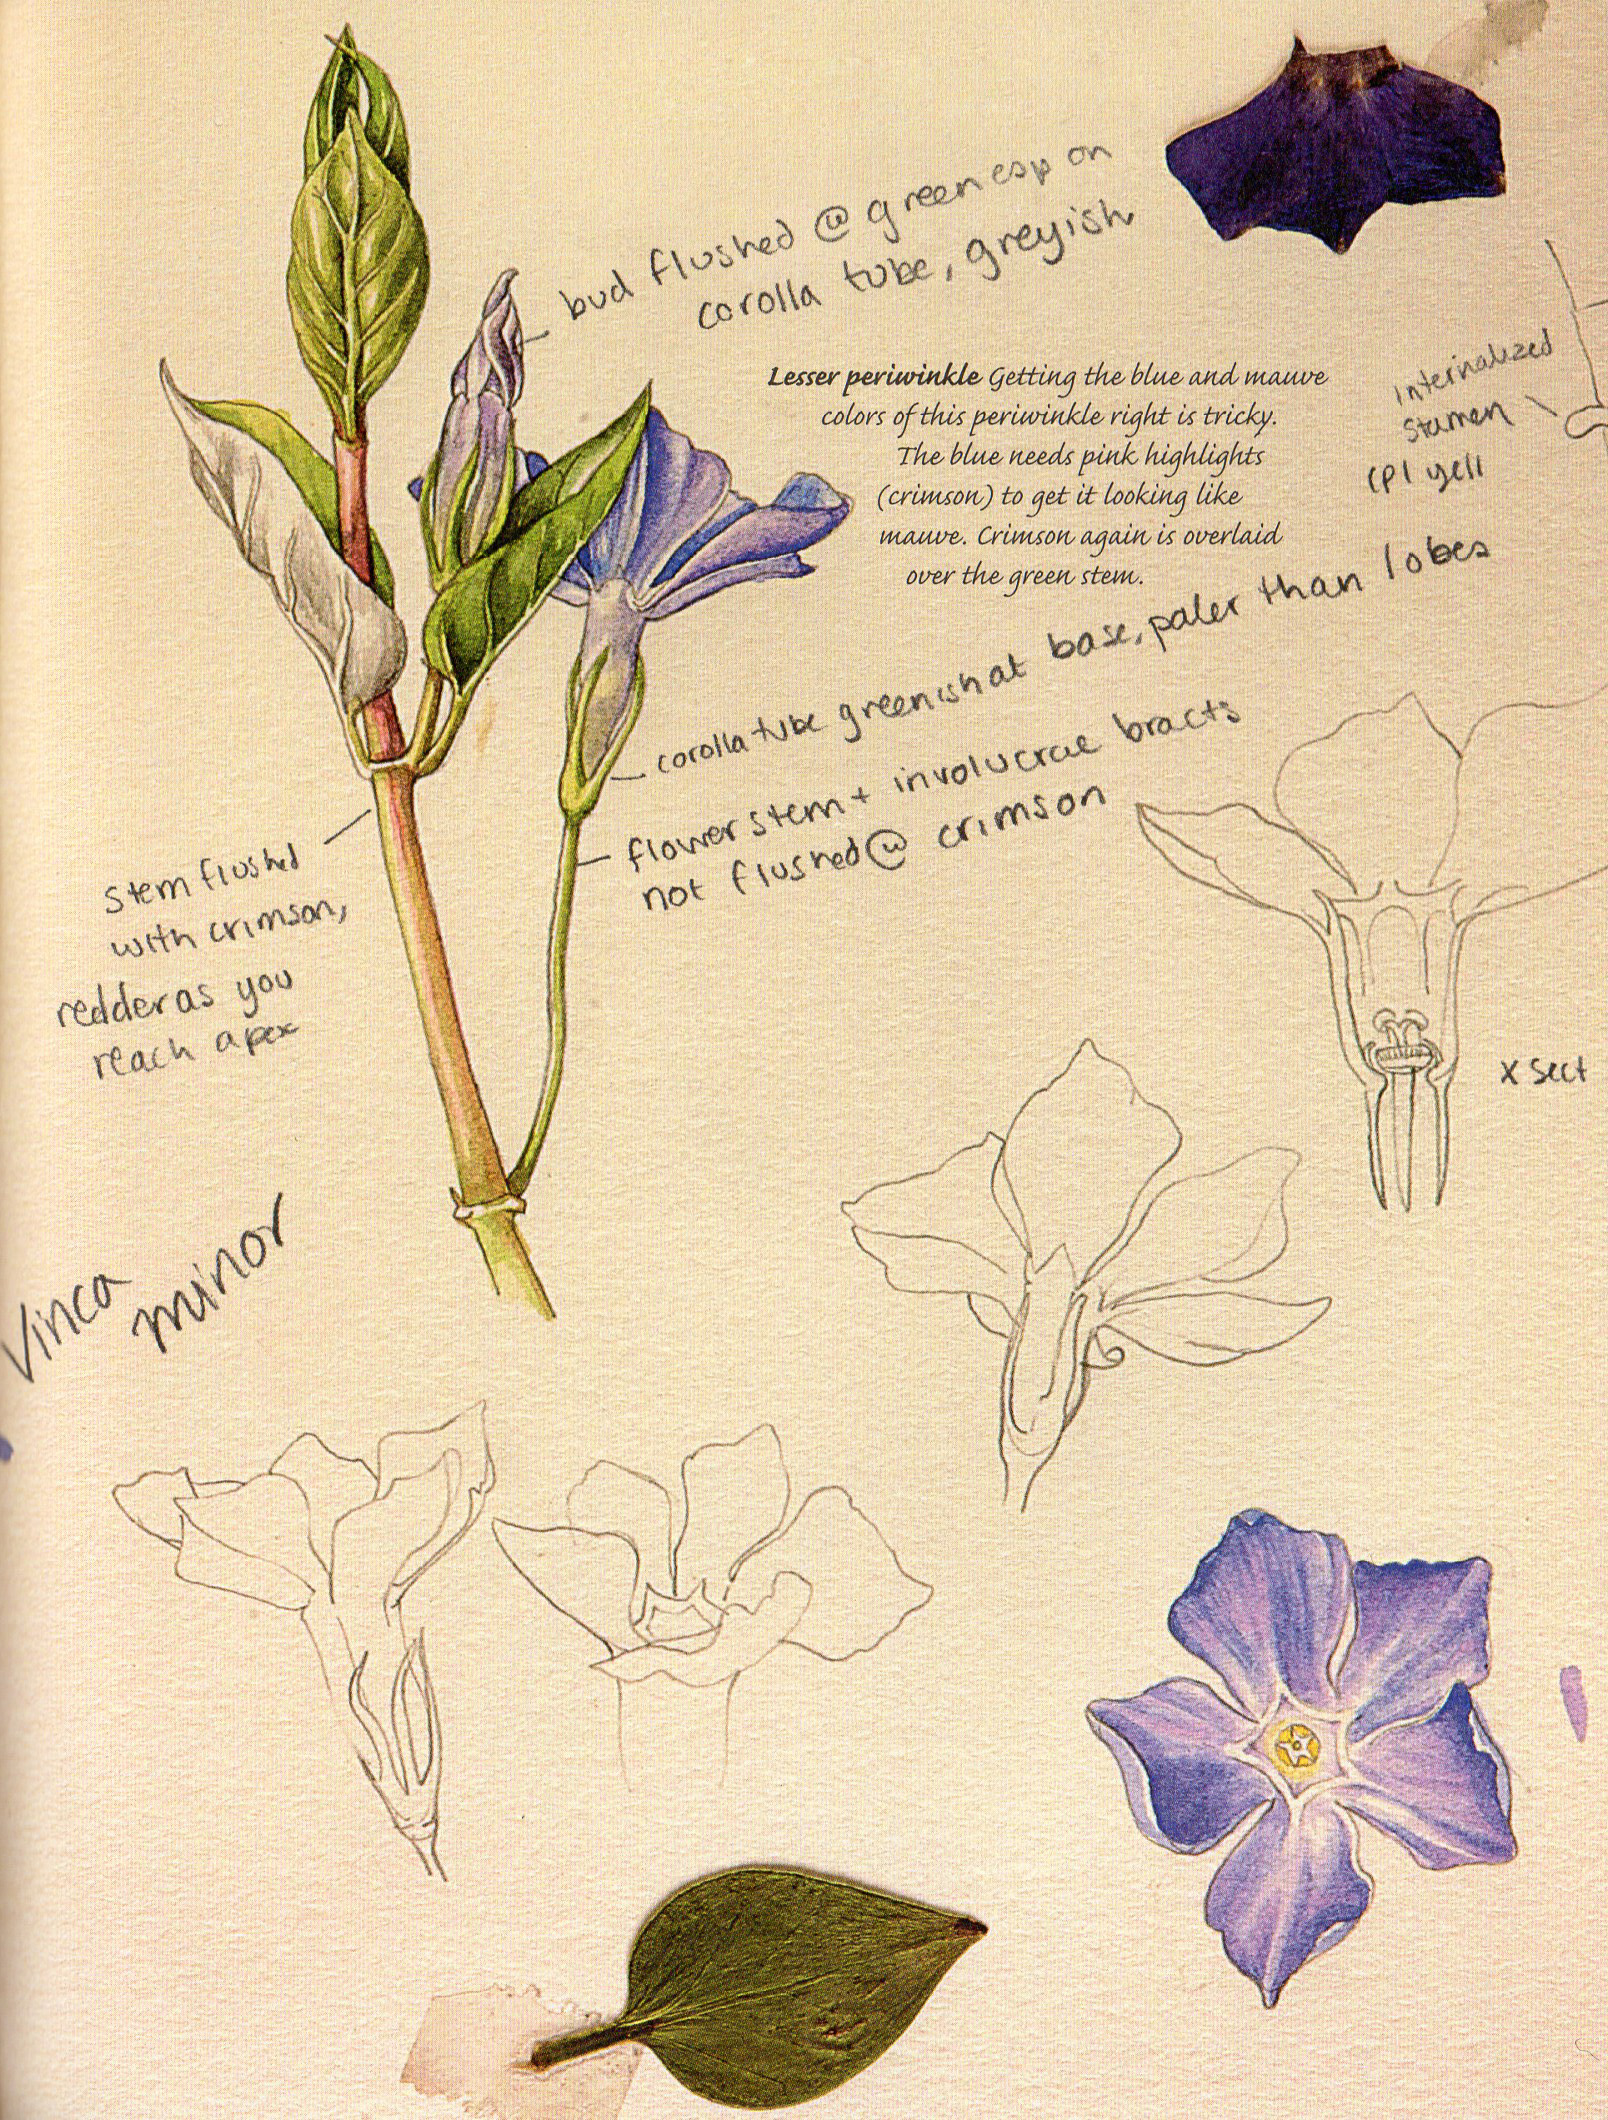 bud flushed @ green esp on
corolla tube, greyish
Lesser periwinkle Getting the blue and mauve
colors of this periwinkle right is tricky.
The blue needs pink highlights
(crimson) to get it looking like
mauve. Crimson again is overlaid
over the green stem.
internalized
stamen
(pl yell
corolla tube greenish at base, paler than lobes
flower stem + involucrae bracts
not flushed @ crimson
stem flushed
with crimson,
redder as you
reach apex
x sect
Vinca
minor